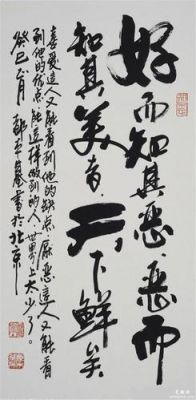 好而知其惡、惡而
知其美者、天下鲜矣
喜爱這人又能看到他的缺点、厌恶這人又能看
到他的优点、能這样做到的人、世界上太少了。
癸巳 月 書於北京